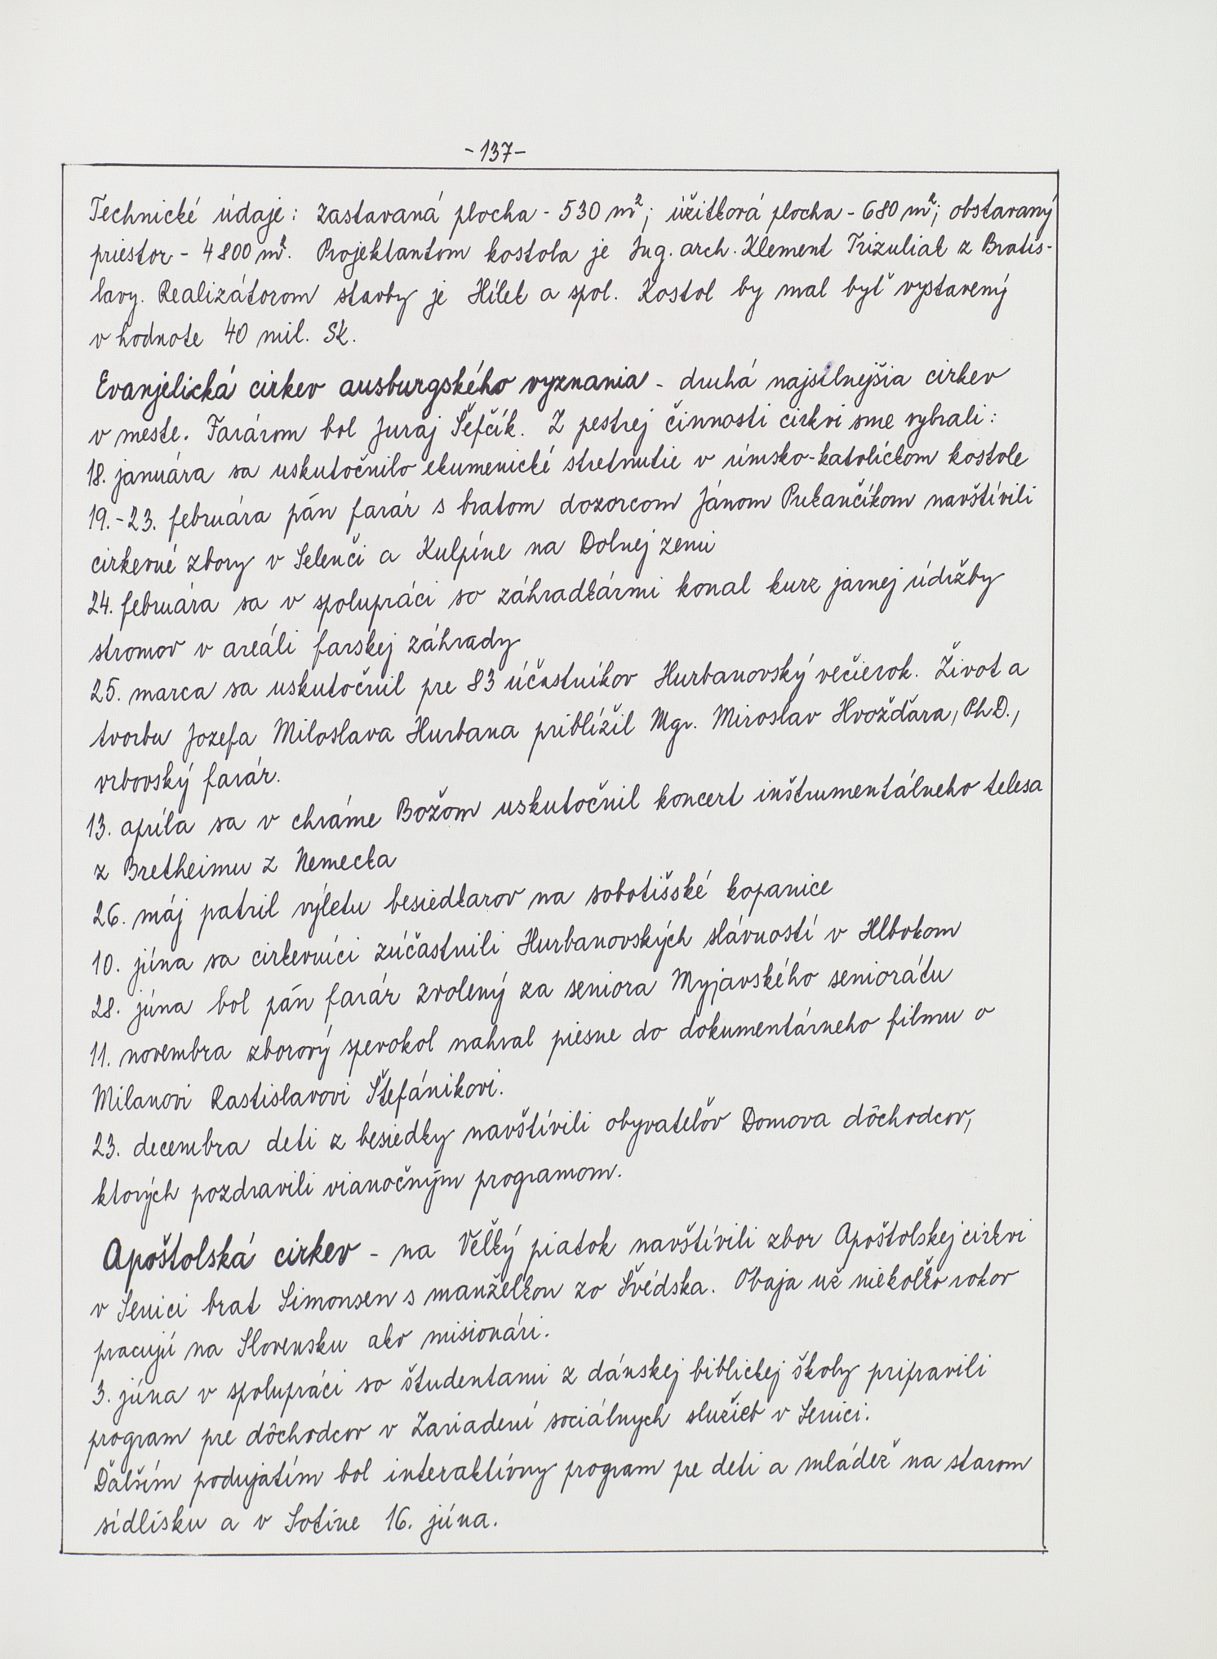 -137-
Technické údaje: zastavaná plocha - 530 m²; úžitková plocha - 680 m²; obstavaný
priestor - 4800 m². Projektantom kostola je Ing. arch. Klement Trizuliak z Bratis-
lavy. Realizátorom stavby je Hílek a spol. Kostol by mal byť vystavený
v hodnote 40 mil. Sk.
Evanjelická cirkev ausburgského vyznania - druhá najsilnejšia cirkev
v meste. Farárom bol Juraj Šefčík. Z pestrej činnosti cirkvi sme vybrali:
18. januára sa uskutočnilo ekumenické stretnutie v rímsko-katolíckom kostole
19.-23. februára pán farár s bratom dozorcom Jánom Pukančíkom navštívili
cirkevné zbory v Selenči a Kulpíne na Dolnej zemi
24. februára sa v spolupráci so záhradkármi konal kurz jarnej údržby
stromov v areáli farskej záhrady
25. marca sa uskutočnil pre 83 účastníkov Hurbanovský večierok. Život a
tvorbu Jozefa Miloslava Hurbana priblížil Mgr. Miroslav Hvožďara, Ph.D.,
vrbovský farár.
13. apríla sa v chráme Božom uskutočnil koncert inštrumentálneho telesa
z Bretheimu z Nemecka
26. máj patril výletu besiedkarov na sobotišské kopanice
10. júna sa cirkevníci zúčastnili Hurbanovských slávností v Hlbokom
28. júna bol pán farár zvolený za seniora Myjavského seniorátu
11. novembra zborový spevokol nahral piesne do dokumentárneho filmu o
Milanovi Rastislavovi Štefánikovi.
23. decembra deti z besiedky navštívili obyvateľov Domova dôchodcov,
ktorých pozdravili vianočným programom.
Apoštolská cirkev - na Veľký piatok navštívili zbor Apoštolskej cirkvi
v Senici brat Simonsen s manželkou zo Švédska. Obaja už niekoľko rokov
pracujú na Slovensku ako misionári.
3. júna v spolupráci so študentami z dánskej biblickej školy pripravili
program pre dôchodcov v Zariadení sociálnych služieb v Senici.
Ďalším podujatím bol interaktívny program pre deti a mládež na starom
sídlisku a v Sotine 16. júna.